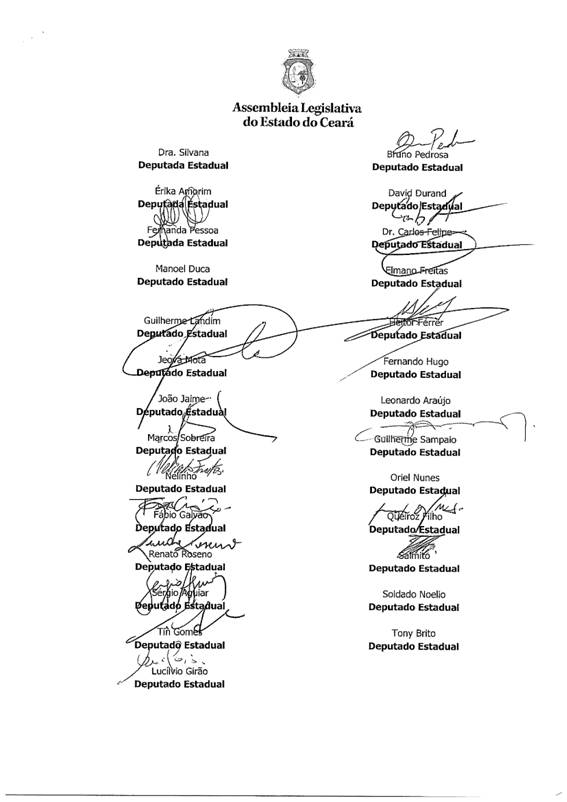 Assembleia Legislativa
do Estado do Ceará
Dra. Silvana
Deputada Estadual
Érika Amorim
Deputada Estadual
Fernanda Pessoa
Deputada Estadual
Manoel Duca
Deputado Estadual
Guilherme Landim
Deputado Estadual
Jeová Mota
Deputado Estadual
João Jaime
Deputado Estadual
Marcos Sobreira
Deputado Estadual
Nelinho
Deputado Estadual
Fábio Galvão
Deputado Estadual
Renato Roseno
Deputado Estadual
Sérgio Aguiar
Deputado Estadual
Tin Gomes
Deputado Estadual
Lucílvio Girão
Deputado Estadual
Bruno Pedrosa
Deputado Estadual
David Durand
Deputado Estadual
Dr. Carlos Felipe
Deputado Estadual
Elmano Freitas
Deputado Estadual
Heitor Férrer
Deputado Estadual
Fernando Hugo
Deputado Estadual
Leonardo Araújo
Deputado Estadual
Guilherme Sampaio
Deputado Estadual
Oriel Nunes
Deputado Estadual
Queiroz Filho
Deputado Estadual
Salmito
Deputado Estadual
Soldado Noelio
Deputado Estadual
Tony Brito
Deputado Estadual